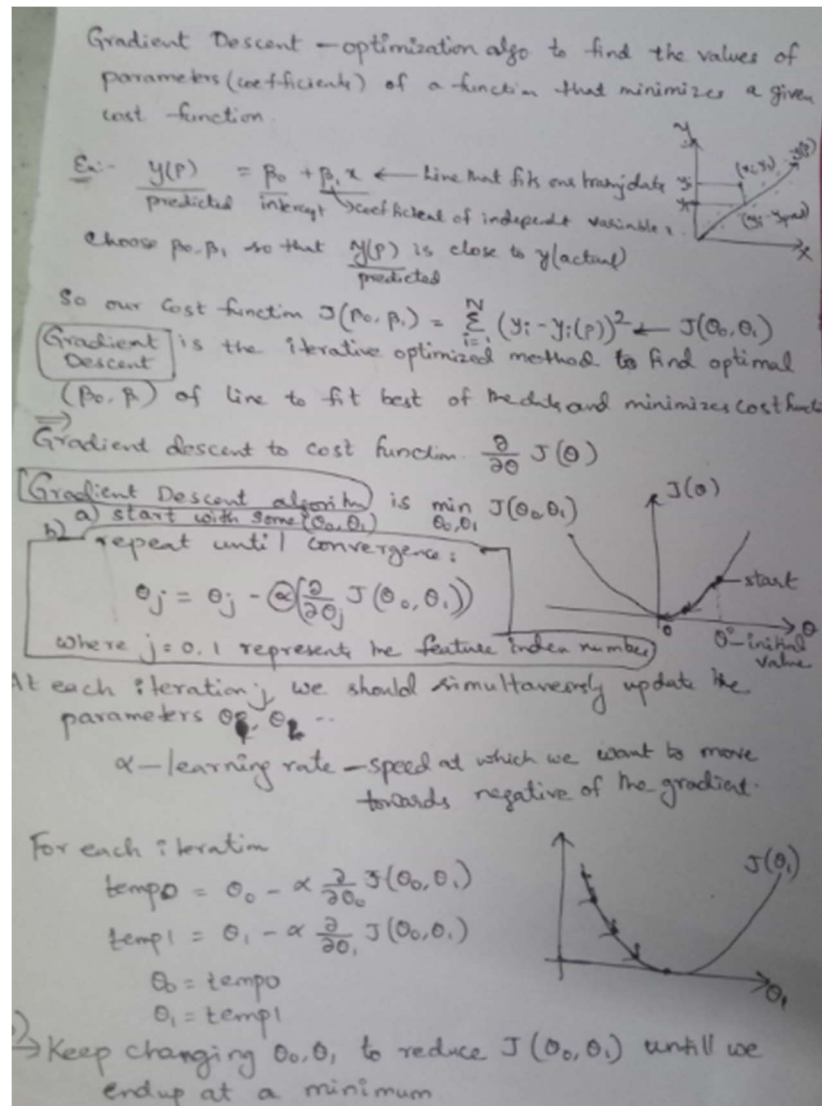 Gradient Descent – optimization algo to find the values of
parameters (coefficients) of a function that minimizes a given
cost function
Ex:- y(p) = β₀ + β₁x ← Line that fits our training data
predicted intercept coefficient of independt variable
Choose β₀, β₁ so that y(p) is close to y(actual)
predicted
y
(xi, yi)
y(p)
yi
(yi - ypred)
x
So our Cost function J(β₀, β₁) = Σ i=1 N (yi - yi(p))² ← J(θ₀, θ₁)
Gradient Descent is the iterative optimized method to find optimal
(β₀, β₁) of line to fit best of the data and minimizes cost functi
⇒
Gradient descent to cost function ∂/∂θ J(θ)
Gradient Descent algorithm is min θ₀,θ₁ J(θ₀, θ₁)
a) start with some (θ₀, θ₁)
b) repeat until convergence:
θj = θj - α(∂/∂θj J(θ₀, θ₁))
where j = 0, 1 represents the feature index number
J(θ)
start
0
θ
θ⁰-initial
value
At each iteration j, we should simultaneously update the
parameters θ₁, θ₂ ..
α – learning rate – speed at which we want to move
towards negative of the gradient.
For each iteration
temp0 = θ₀ - α ∂/∂θ₀ J(θ₀, θ₁)
temp1 = θ₁ - α ∂/∂θ₁ J(θ₀, θ₁)
θ₀ = temp0
θ₁ = temp1
J(θ₁)
θ₁
→ Keep changing θ₀, θ₁ to reduce J(θ₀, θ₁) untill we
endup at a minimum